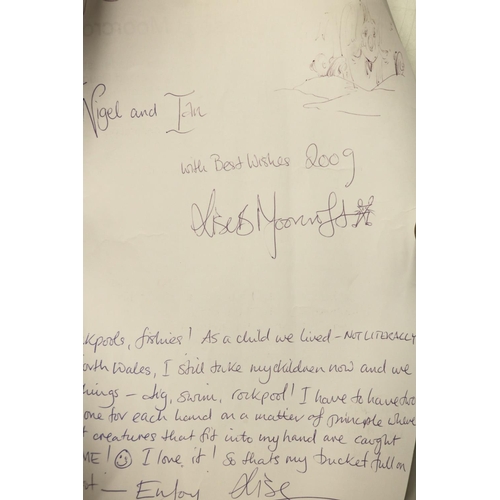 Nigel and
with Best Wishes 2009
Lise B Moorcroft
kpools, fishies! As a child we lived - NOT LITERALLY
orth Wales, I still take my children now and we
hings - dig, swim, rockpool! I have to have two
one for each hand as a matter of principle where
t creatures that fit into my hand are caught
ME! ☺ I love it! So thats my bucket full on
- Enjoy Lise